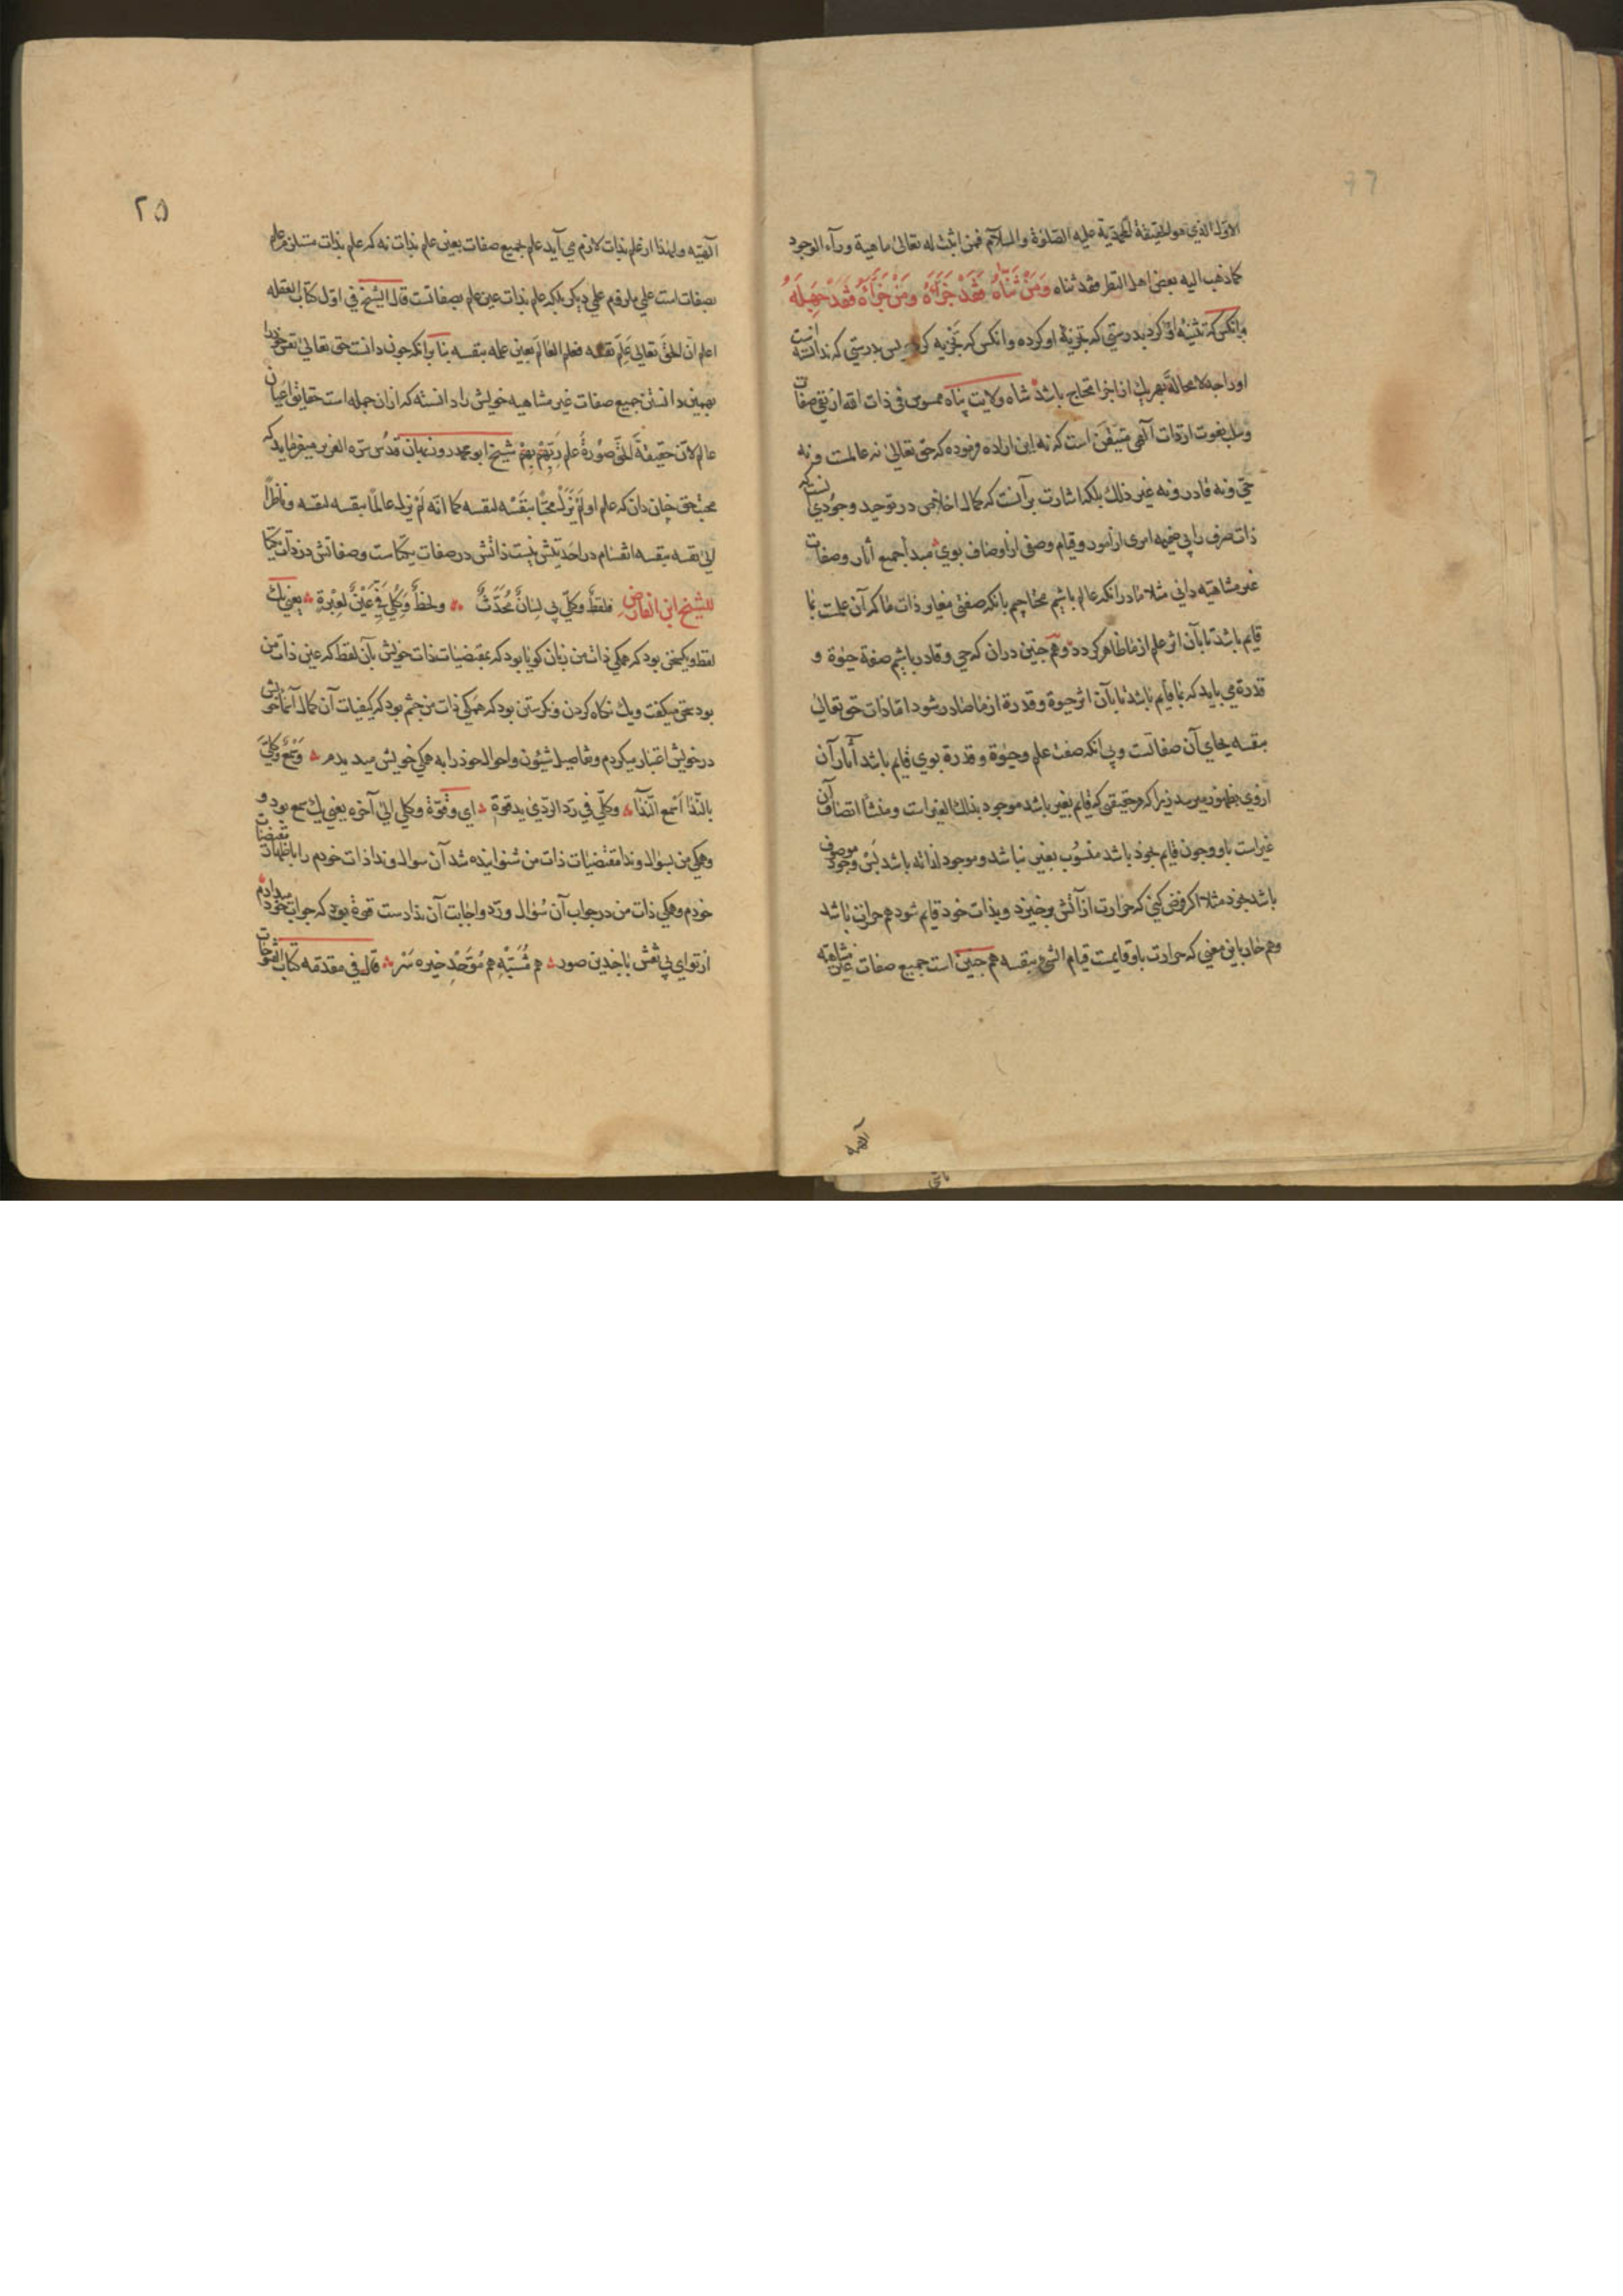 الاوّل الذي هو الحقیقة المحمدیة علیه الصّلوٰة والسلام فمن اثبت له تعالیٰ ماهیة وراء الوجود
کما ذهب الیه بعض اهل النظر فقد ثناه وَمَنْ ثَنَّاهُ فَقَدْ جَزَّأَهُ وَمَنْ جَزَّأَهُ فَقَدْ جَهِلَهُ
وانکس که تثنیهٔ او کرد بدرستی که تجزیهٔ او کرده وانکس که تجزیه کرد پس بدرستی که ندانسته است
اورا چه لا محالة بهر یك از اجزا محتاج باشد شاه ولایت پناه ممسوس فی ذات الله از نفی صفات
وسلب نعوت از ذات الٓهی متیقّن است که نه این اراده فرموده که حق تعالیٰ نه عالمست و نه
حیّ ونه قادر ونه غیر ذلك بلکه اشارت برآنست که کمال اخلاص در توحید وجودی آنست که
ذات صرف را بی ضمیمه امری از امور وقیام وصفی از اوصاف بوی مبدأ جمیع اثار وصفات
غیر متناهیه دانی مثلا ما در انکه عالم باشیم محتاجیم بانکه صفتی مغایر ذات ما که آن علمست بما
قایم باشد تا بآن اثر علم از ما ظاهر کردد وهم چنین دران که حی وقادر باشیم صفة حیوٰة و
قدرة می باید که بما قایم باشد تا بآن اثر حیوٰة وقدرة از ما صادر شود اما ذات حق تعالیٰ
بنفسه بجای آن صفاتست وبی انکه صفت علم وحیوٰة وقدرة بوی قایم باشد آثار آن
ازوی بظهور میرسد زیرا که هر حقیقتی که قایم بغیر باشد موجود بذلك الغیر است ومنشأ اتصاف آن
غیر است باو وچون قایم بخود باشد منسوب بغیر نباشد وموجود لذاته باشد پس وجود موصوف
باشد بخود مثلا اکر فرض کنی که حرارت از آتش برخیزد وبذات خود قایم شود هم حرارت باشد
وهم حار باین معنی که حرارت باو قایمست قیام الشیء بنفسه هم چنین است جمیع صفات غیر متناهیه
٢٥
الٓهیّه ولهذا از علم بذات لازم می آید علم بجمیع صفات بعین علم بذات نه که علم بذات مستلزم علم
بصفات است علی ما رقم علی دیکر بلکه علم بذات عین علم بصفاتست قال الشیخ فی اوّل کتاب العقله
اعلم انّ الحقّ تعالی عَلِمَ نفسه فعلم العالَم بعین علمه بنفسه بنا برانکه چون دانست حق تعالیٰ نفس خود را
بهمین دانستن جمیع صفات غیر متناهیه خویش را دانسته که ازان جمله است حقایق اعیان
عالم لانّ حقیقة الحق صورة علم ربّهم بهم شیخ ابو محمد روزبهان قدّس سرّه العزیز میفرماید که
محبّت حق چنان دان که علم او لَمْ یَزَلْ محبًّا بنفسه لنفسه کما انّه لَمْ یزل عالمًا بنفسه لنفسه وناظرًا
الیٰ نفسه بنفسه انقسام در احدیتش نیست ذاتش در صفات یکتاست وصفاتش در ذات یکتا
للشیخ ابن الفارض فلفظٌ وکلّی بی لسانٌ مُحَدِّثٌ ولحظٌ وکُلّی فِیَّ عَیْنٌ لِعِبْرَةِ یعنی یك
لفظ ویکسخن بود که همکی ذات من زبان کویا بود که بمقتضیات ذات خویش بآن لفظ که عین ذات من
بود سخن میکفت ویك نکاه کردن ونکرستن بود که همکی ذات من چشم بود که بکیفیات آن کمال آنها خویش
در خویش اعتبار میکردم وتفاصیل شیٔون واحوال خود را به همکی خویش میدیدم وَسَمْعٌ وکلّیَ
بالنّدا اَسْمَعُ النّدا وکلّی فی ردّ الرّدیٰ ید قوّة ای وقوّة وکلّی الیٰ آخره یعنی یك سمع بود و
وهمکی من بسؤال وندا مقتضیات ذات من شنواینده شد آن سوال وندا ذات خودم را باظهار مقتضیات
خودم وهمکی ذات من در جواب آن سؤال وردّ واجابت آن ندا دست قوة بود که جواب خود میدادم
از توای بی نقش با چندین صور هم مُشَبِّه هم مُوَحِّد خیره سر قال فی مقدمه کتاب الفتوحات